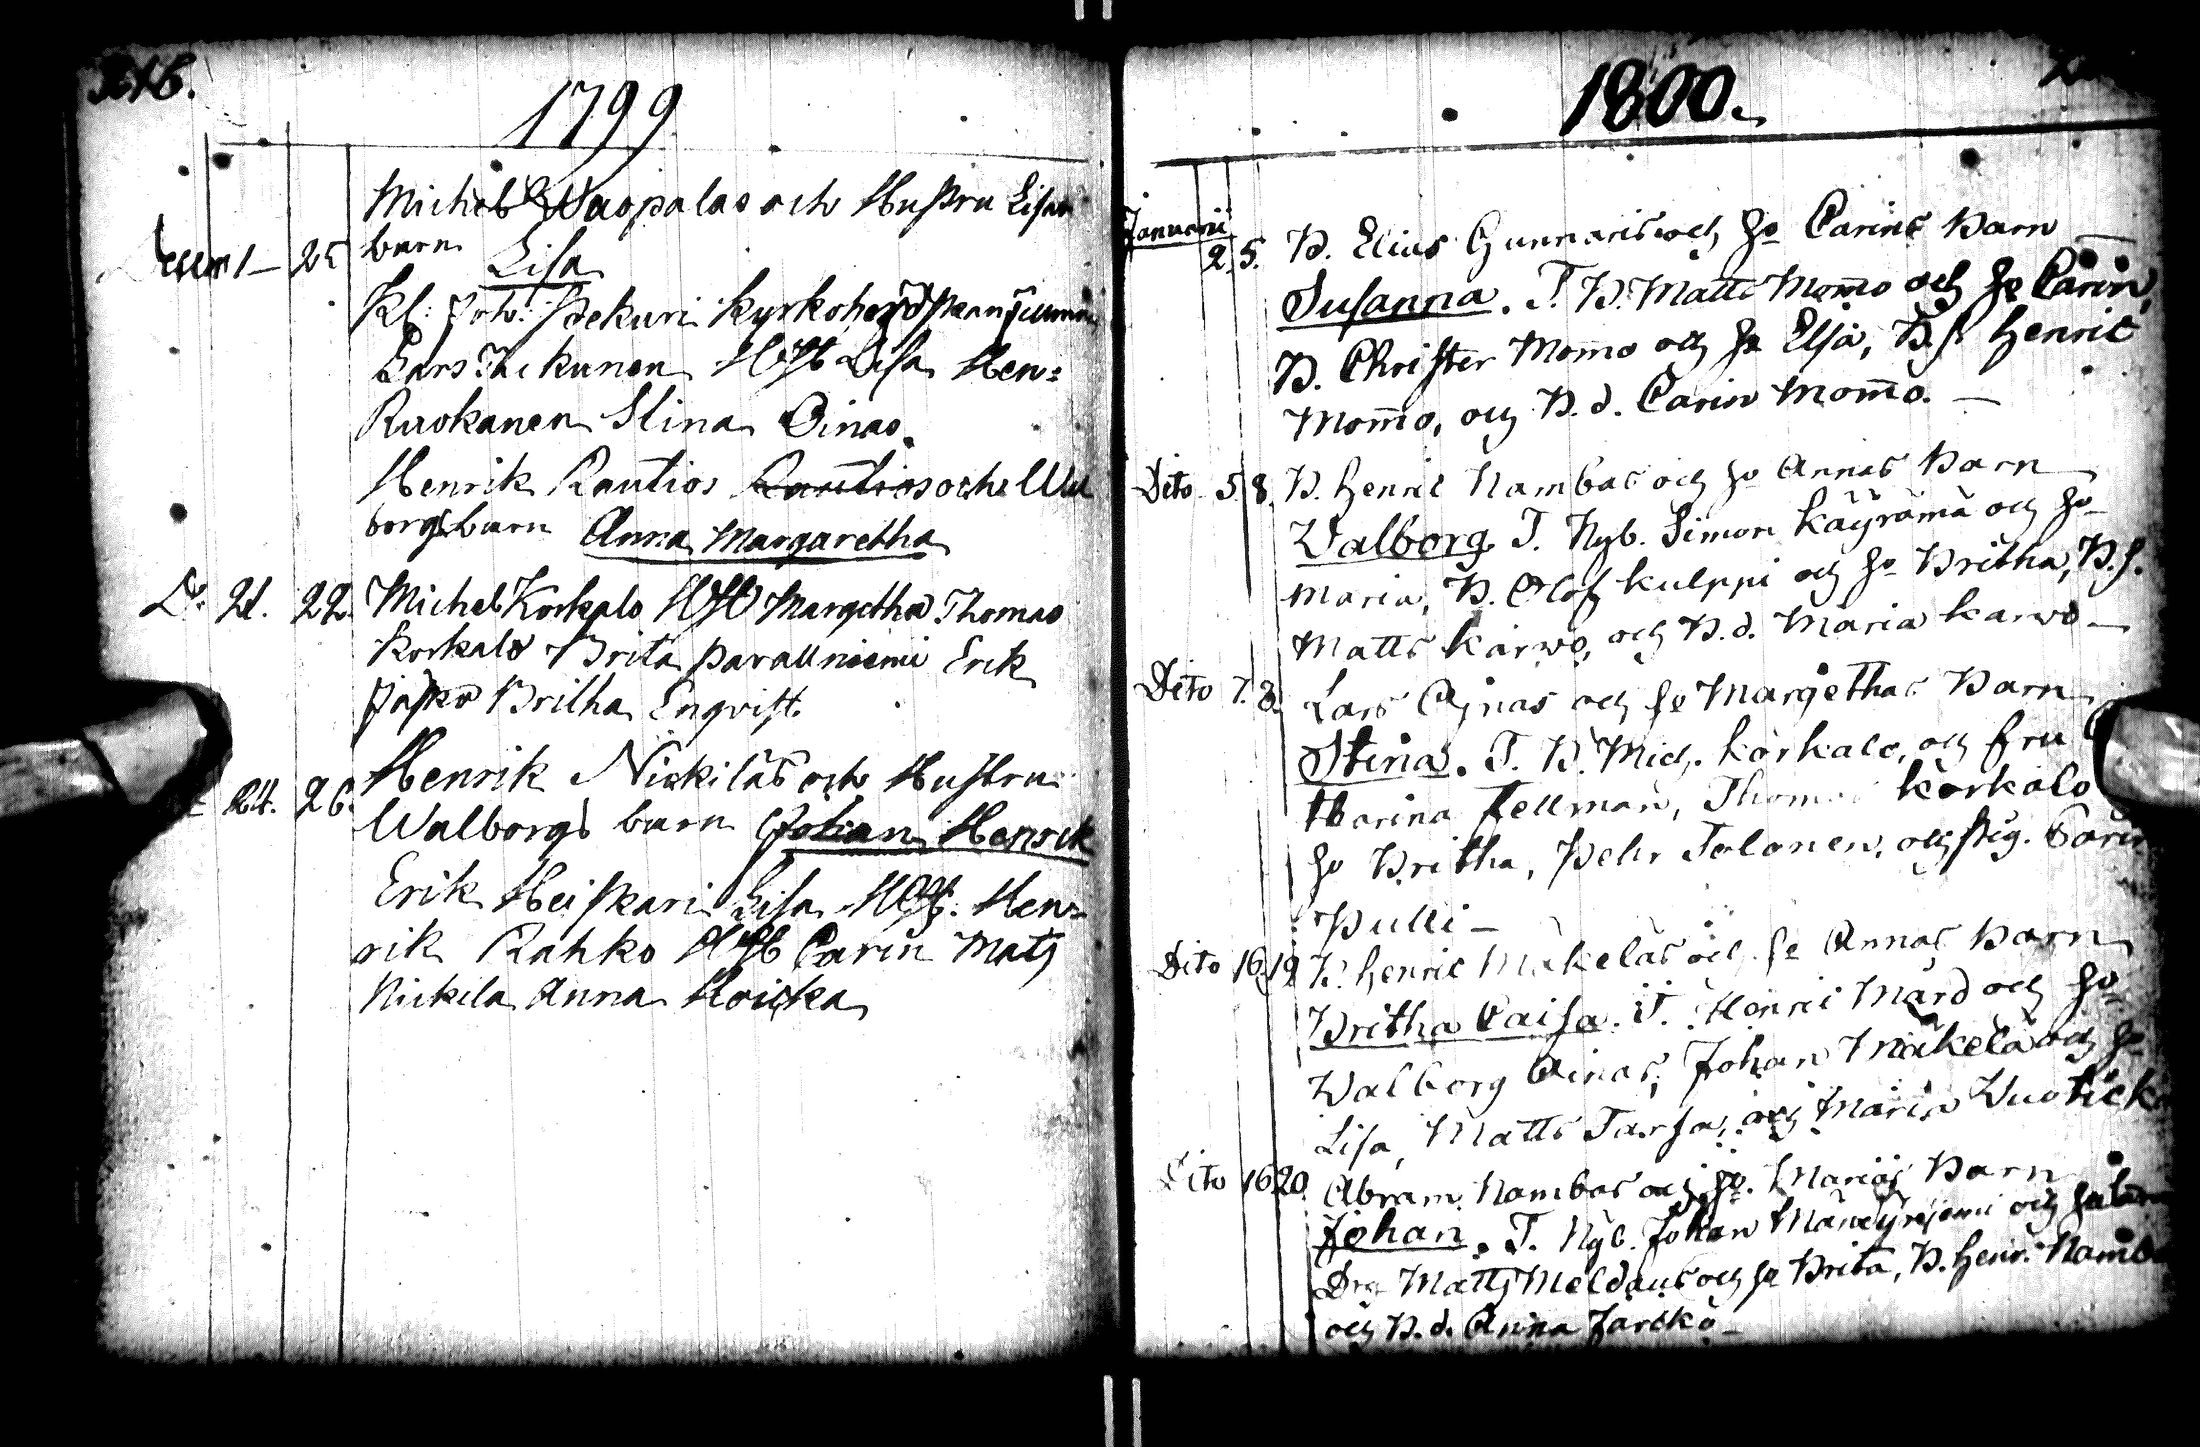 1799
Michel Waopalas och Hustru Lisas
barn Lisa
Decem 1 — 25
Kl: Joh: Pekuri kyrkoherdskan
Lars Hust Lisa Hen=
Ruokanen Stina Oinas.
Henrik Rautios Rautios och Wal
borgs barn Anna Margaretha
D: 21. 22. Michel Korkalo Margetha Thomas
Korkalo Brita Paavalniemi Erik
Jäsko Britha Enqvist.
Henrik Nickiläs och Hustru
24. 26. Walborgs barn Johan Henrik
Erik Heiskari Lisa Hust. Hen=
rik Rahko Carin Mats
Nickila Anna Hoicka
1800.
Januarii
2. 5. B. Elias Gunnaris och Ho Carins Barn —
Susanna. T. B. Matts Mom̅o och Ho Carin,
B. Christer Mom̅o och Ho Elsa, B. S. Henric
Mom̅o, och B. d. Carin Mom̅o. —
Dito 5. 8. B. Henric Nambas och Ho Annas Barn
Walborg. T. Nyb. Simon Käyrämä och Ho
Maria, B. Olof Kulppi och Ho Britha, B. S.
Matts Karwo, och B. d. Maria Karwo —
Dito 7. 8. Lars Ojnas och Ho Margethas Barn
Stina. T. B. Mich. Korkalo, och fru
tharina Fellman, Korkalo
Ho Britha, Pehr Tolonen, och pig. Carin
Pulli —
Dito 16. 19 B. Henric Mäkeläs och Ho Annas Barn
Britha Caisa. T. Henric Mård och Ho
Walborg Oinas, Johan Mäkelä och Ho
Lisa, Matts Tarsa, och Maria
Dito 16 20. Abram Nambas och Ho. Marias Barn
Johan. T. Nyb. Johan och
Matts och Ho Brita, B. Henr. Namba
och B. d. Anna Jarckö —